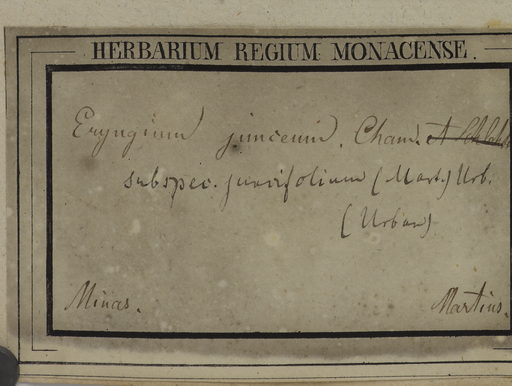 HERBARIUM REGIUM MONACENSE.
Eryngium junceum. Cham.
subspec. juncifolium (Mart.) Urb.
(Urban)
Minas. Martius.